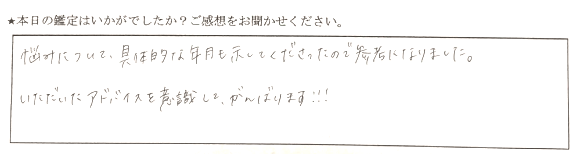 ★本日の鑑定はいかがでしたか？ご感想をお聞かせください。
悩みについて、具体的な年月も示してくださったので参考になりました。
いただいたアドバイスを意識して、がんばります!!!